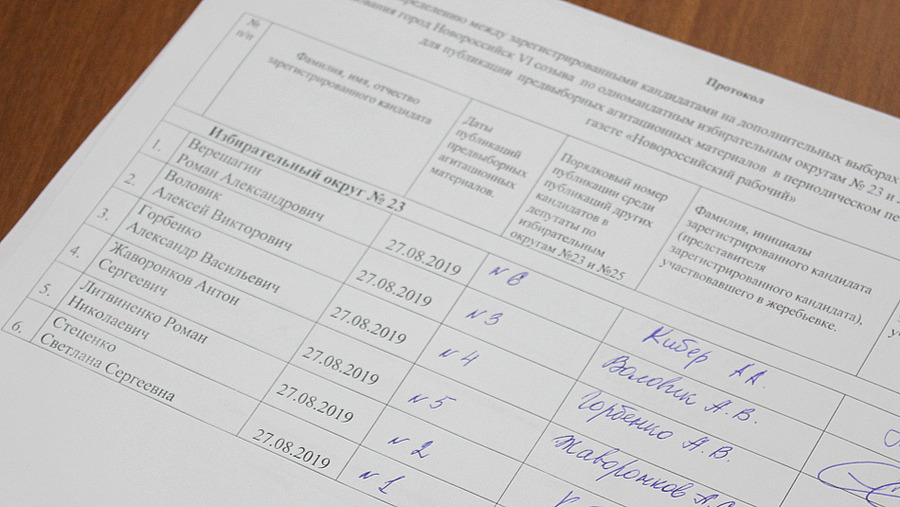 Протокол
определению между зарегистрированными кандидатами на дополнительных выборах
город Новороссийск VI созыва по одномандатным избирательным округам № 23 и
для публикации предвыборных агитационных материалов в периодическом
газете «Новороссийский рабочий»
№
п/п
Фамилия, имя, отчество
зарегистрированного кандидата
Даты
публикаций
предвыборных
агитационных
материалов.
Порядковый номер
публикации среди
публикаций других
кандидатов в
депутаты по
избирательным
округам №23 и №25
Фамилия, инициалы
зарегистрированного кандидата
(представителя
зарегистрированного кандидата),
участвовавшего в жеребьевке.
Избирательный округ № 23
1.
Верещагин
Роман Александрович
27.08.2019
№ 6
Кибер А.А.
2.
Воловик
Алексей Викторович
27.08.2019
№ 3
Воловик А.В.
3.
Горбенко
Александр Васильевич
27.08.2019
№ 4
Горбенко А.В.
4.
Жаворонков Антон
Сергеевич
27.08.2019
№ 5
Жаворонков А.С.
5.
Литвиненко Роман
Николаевич
27.08.2019
№ 2
6.
Стеценко
Светлана Сергеевна
27.08.2019
№ 1